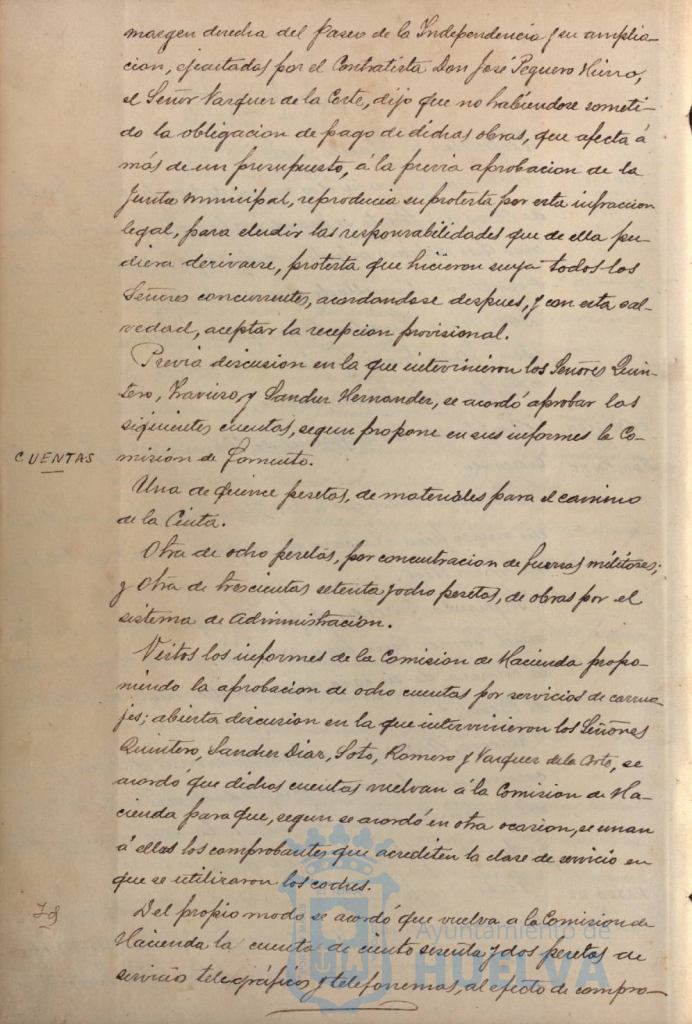 margen derecha del Paseo de la Independencia y su amplia-
cion, ejecutadas por el Contratista Don José Peguero Hierro,
el Señor Vazquez de la Corte, dijo que no habiendose someti-
do la obligacion de pago de dichas obras, que afecta á
más de un presupuesto, á la previa aprobacion de la
Junta municipal, reproducia su protesta por esta infraccion
legal, para eludir las responsabilidades que de ella pu-
diera derivarse, protesta que hicieron suya todos los
Señores concurrentes, acordandose despues, y con esta sal-
vedad, aceptar la recepcion provisional.
Previa discusion en la que intervinieron los Señores Quin-
tero, Travieso, y Sanchez Hernandez, se acordó aprobar las
siguientes cuentas, segun propone en sus informes la Co-
CUENTAS
mision de Fomento.
Una de quince pesetas, de materiales para el camino
de la Cinta.
Otra de ocho pesetas, por concentracion de fuerzas militares;
y otra de trescientas setenta y ocho pesetas, de obras por el
sistema de Administracion.
Vistos los informes de la Comision de Hacienda propo-
niendo la aprobacion de ocho cuentas por servicios de carrua-
jes; abierta discusion en la que intervinieron los Señores
Quintero, Sanchez Diaz, Soto, Romero y Vazquez de la Corte, se
acordó que dichas cuentas vuelvan á la Comision de Ha-
cienda para que, segun se acordó en otra ocasion, se unan
á ellas los comprobantes que acrediten la clase de servicio en
que se utilizaron los coches.
Del propio modo se acordó que vuelva a la Comision de
Hacienda la cuenta de ciento sesenta y dos pesetas de
servicios telegráficos y telefonemas, al efecto de compro-
Ayuntamiento de
HUELVA